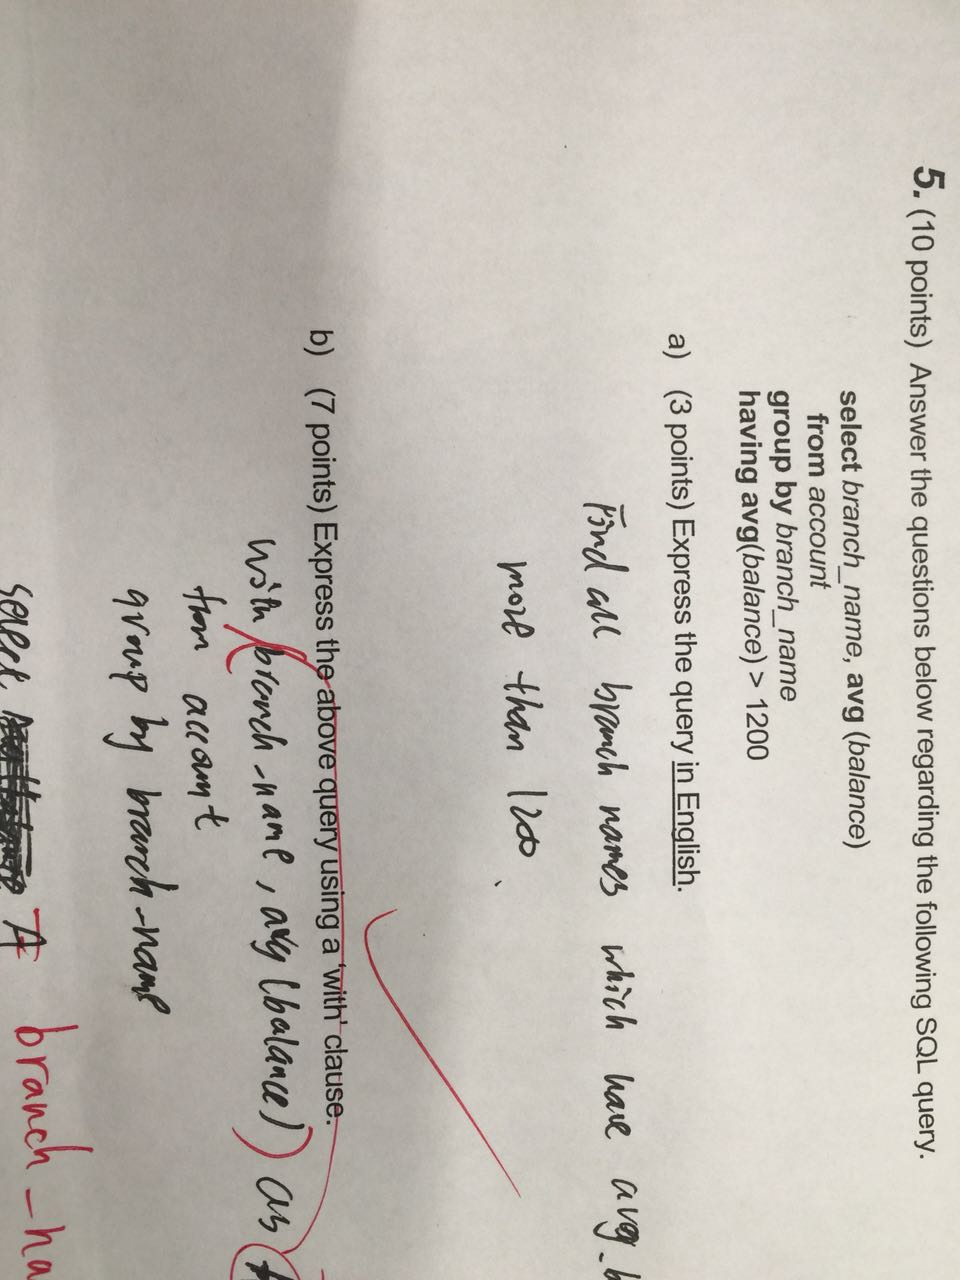 5. (10 points) Answer the questions below regarding the following SQL query.
select branch_name, avg (balance)
from account
group by branch_name
having avg(balance) > 1200
a) (3 points) Express the query in English.
Find all branch names which have avg_b
more than 1200
b) (7 points) Express the above query using a 'with' clause.
with (branch_name, avg (balance)) as
from account
group by branch_name
select A branch_na